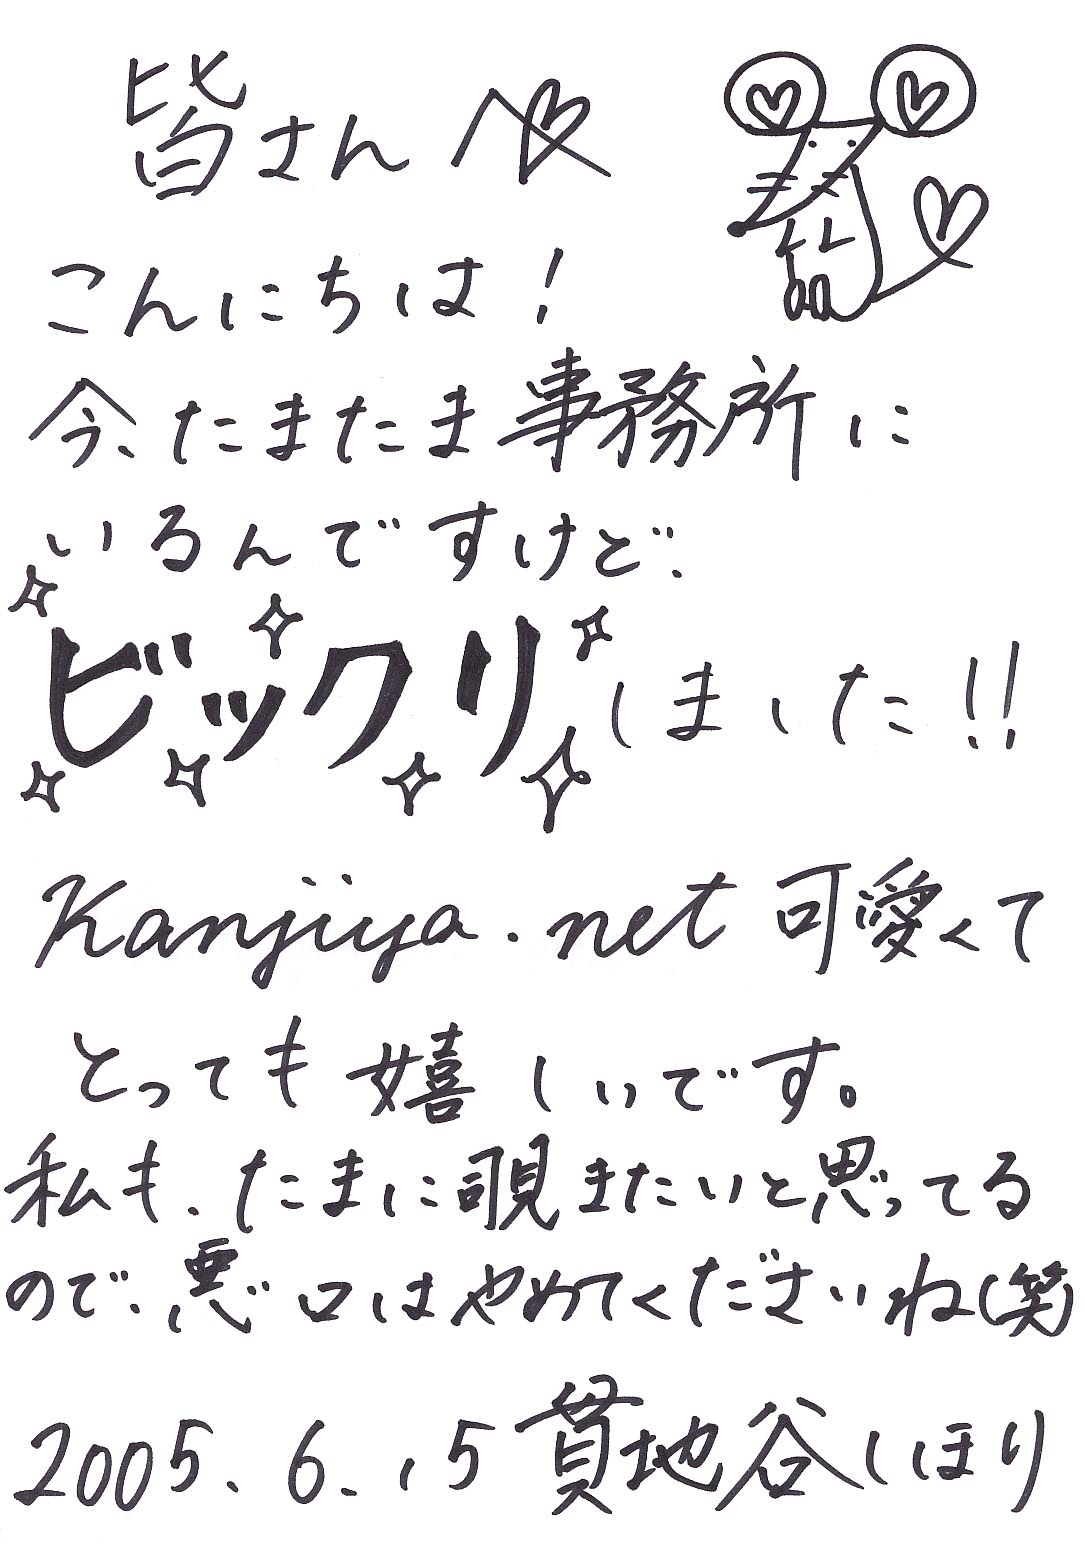 皆さんへ
こんにちは!
今、たまたま事務所に
いるんですけど、
ビックリしました!!
Kanjiya.net 可愛くて
とっても嬉しいです。
私も、たまに覗きたいと思ってる
ので、悪口はやめてくださいね(笑
2005.6.15 貫地谷しほり